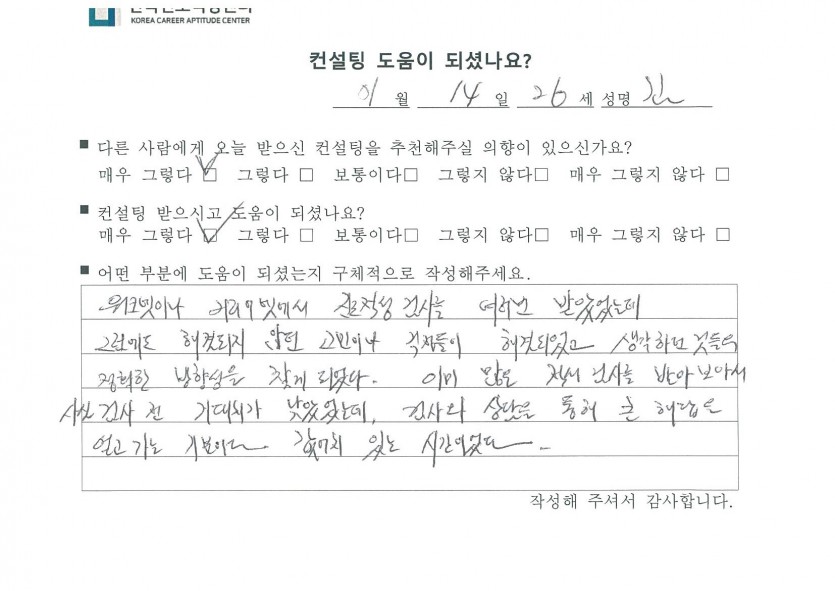 KOREA CAREER APTITUDE CENTER
컨설팅 도움이 되셨나요?
01 월 14 일 26 세 성명 김
■ 다른 사람에게 오늘 받으신 컨설팅을 추천해주실 의향이 있으신가요?
매우 그렇다 ☑ 그렇다 □ 보통이다□ 그렇지 않다□ 매우 그렇지 않다 □
■ 컨설팅 받으시고 도움이 되셨나요?
매우 그렇다 ☑ 그렇다 □ 보통이다□ 그렇지 않다□ 매우 그렇지 않다 □
■ 어떤 부분에 도움이 되셨는지 구체적으로 작성해주세요.
워크넷이나 커리어넷에서 진로적성 검사를 여러번 받았었는데
그럼에도 해결되지 않던 고민이나 걱정들이 해결되었고 생각하던 것들의
정확한 방향성을 찾게 되었다. 이미 많은 적성 검사를 받아 보아서
사실 검사 전 기대치가 낮았었는데, 검사와 상담을 통해 큰 해답을
얻고 가는 기분이다. 값어치 있는 시간이었다.
작성해 주셔서 감사합니다.